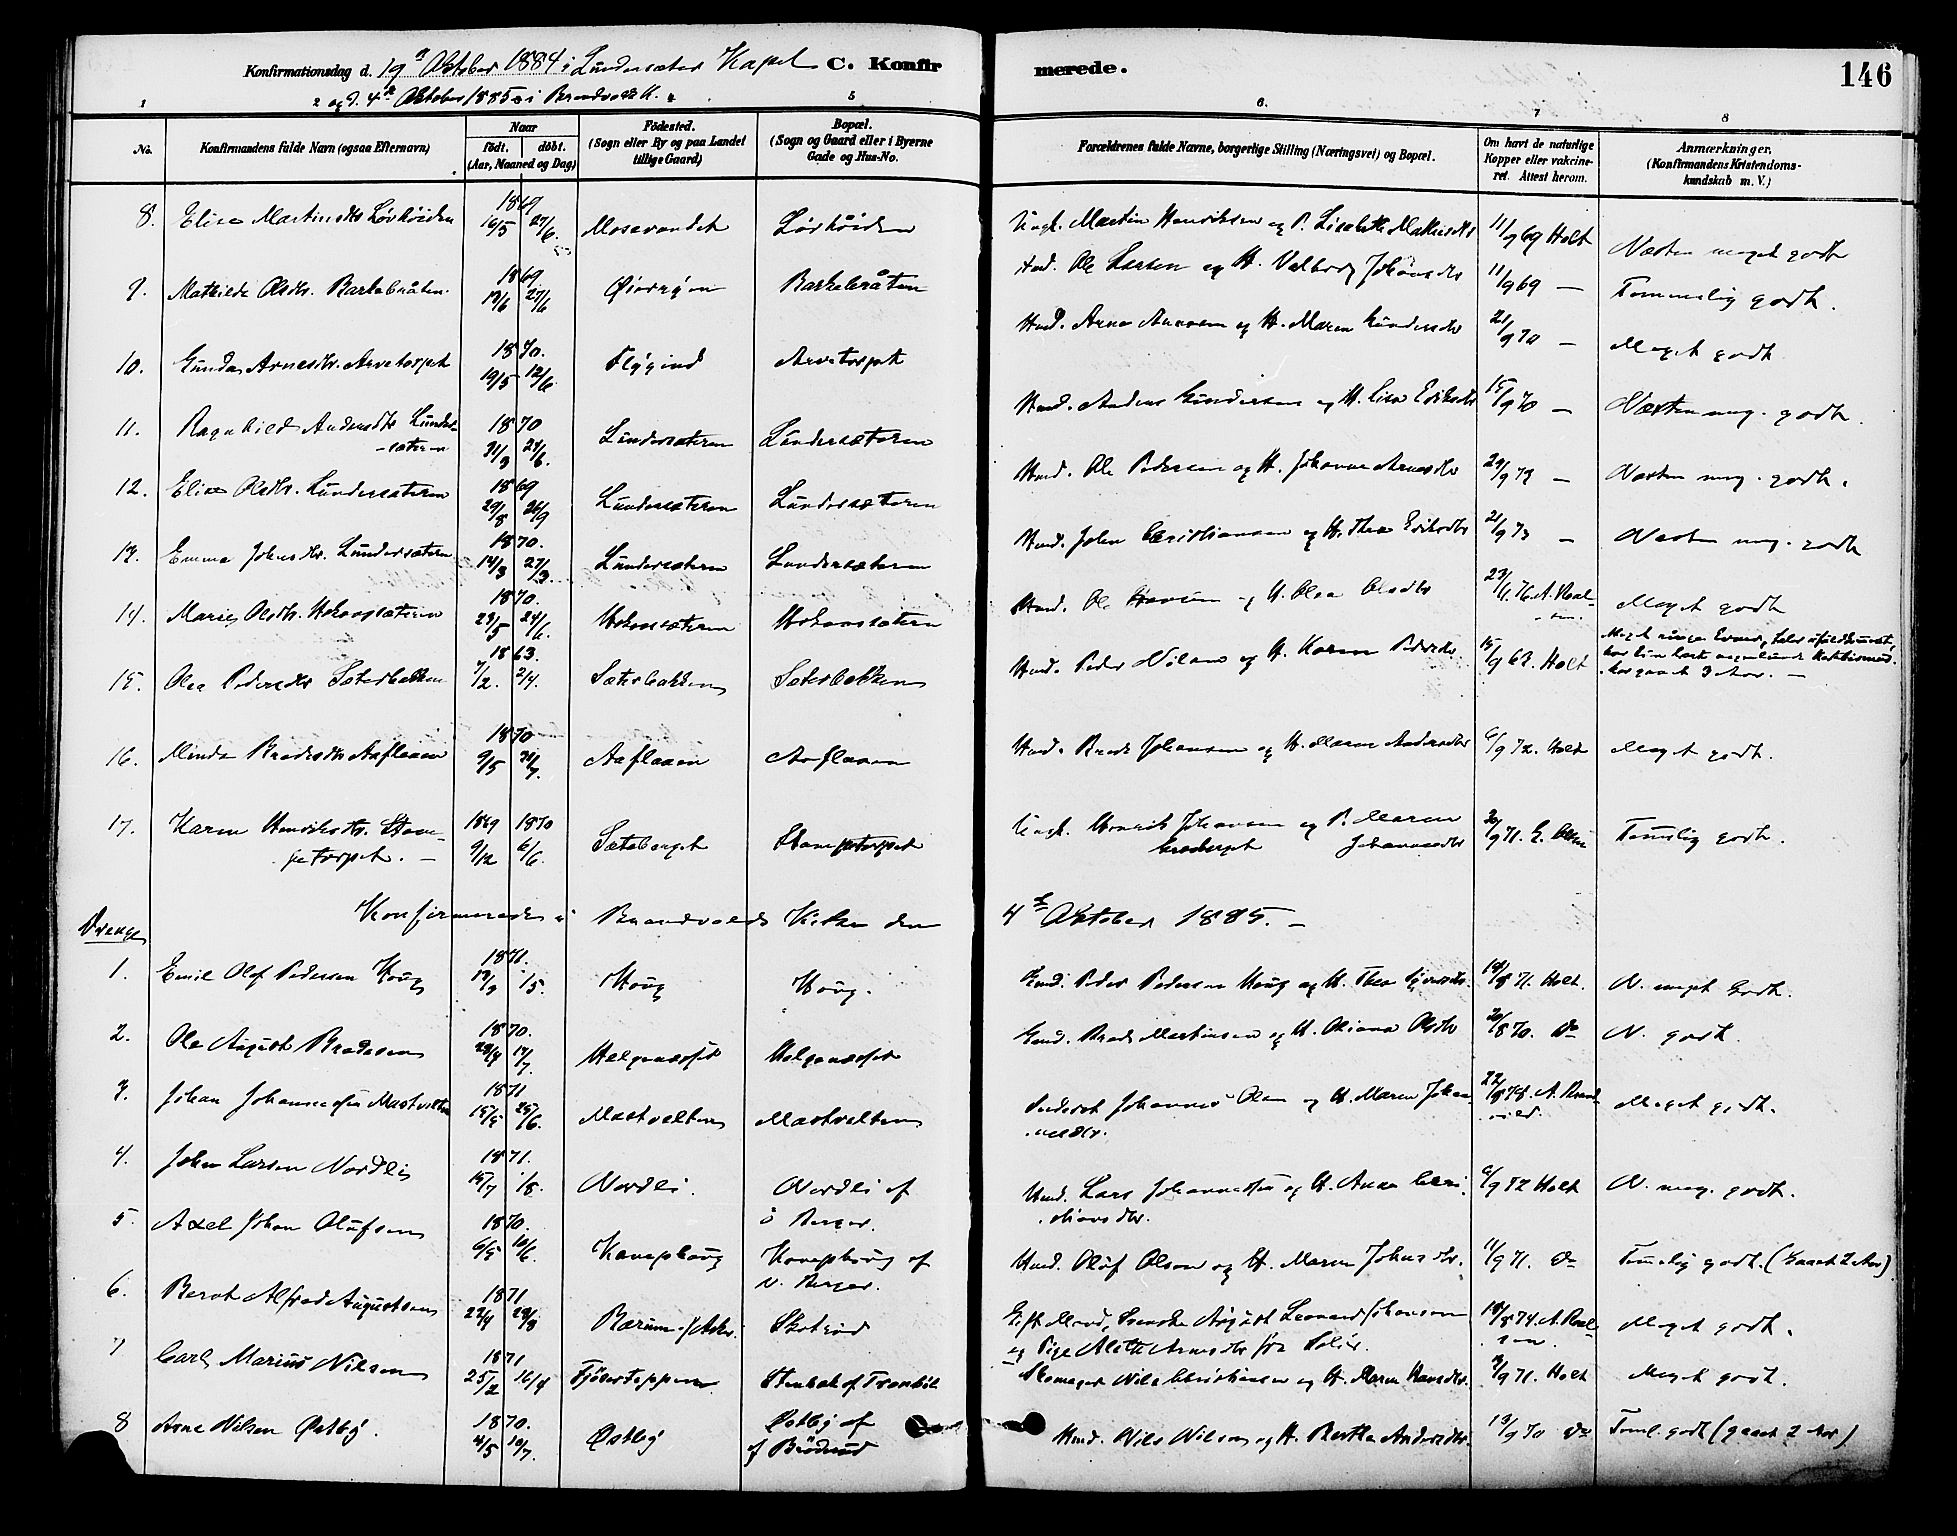 Konfirmationsdag d. 19de Oktober 1884 i Lundersæter Kapel C. Konfirmerede. 146
og d. 4de Oktober 1885 i Brandvold K.
1 2 5 6. 7 8
No. Konfirmandens fulde Navn (ogsaa Efternavn) Naar födt. döbt. (Aar, Maaned og Dag) Födested. (Sogn eller By og paa Landet tillige Gaard) Bopæl. (Sogn og Gaard eller i Byerne Gade og Hus-No. Forældrenes fulde Navne, borgerlige Stilling (Næringsvei) og Bopæl. Om havt de naturlige Kopper eller vakcineret. Attest herom. Anmærkninger. (Konfirmandens Kristendomskundskab m. V.)
8. Elise Martinsdtr Lövhöiden 1869 16/5 27/6. Mosevandet Lövhöiden Ungk. Martin Henriksen og P. Lisabeth 11/9 69 Holt Næsten meget godt
9. Mathilde Olsdtr. Barkebråten 1869 13/6 27/6 Öieröen Barkebråten Hmd. Ole Larsen og H. Valborg Johansdtr 11/9 69 — Temmelig godt.
10. Gunda Arnesdtr. Arvetorpet 1870. 19/5 12/6. Flygind Arvetorpet Hmd. Arne Arnesen og H. Maren Gundersdtr 21/9 70 — Meget godt
11. Ragnhild Andersdtr Lundersæteren 1870 31/3 24/6. Lundersæteren Lundersæteren Hmd. Anders Gundersen og H. Lisa Eriksdtr 15/9 70 — Næsten meg. godt.
12. Elise Olsdtr. Lundersæteren 1869 29/8 26/9 Lundersæteren Lundersæteren Hmd. Ole Pedersen og H. Johanne Arnesdtr 29/9 73 — Næsten meg. godt.
13. Emma Johnsdtr. Lundersæteren 1870. 14/3 27/3. Lundersæteren Lundersæteren Hmd. John Christiansen og H. Thea Eriksdtr 21/9 73 — Næsten meg. godt
14. Marie Olsdtr. Hokaassæteren 1870. 29/5 24/6. Hokaassæteren Hokaassæteren Hmd. Ole Hansen og H. Olea Olsdtr 23/6 76 Meget godt
15. Olea Pedersdtr Sæterbakken 1863. 7/2. 2/4. Sæterbakken Sæterbakken Hmd. Peder Nilsen og H. Karen Pedersdtr 15/9 63. Holt Meget ringe Evner,
har gaaet 3 Aar. —
16. Minda Bredesdtr Aaflaaen 1870 9/5 31/7. Aaflaaen Aaflaaen Hmd. Brede Johansen og H. Maren Andersdtr 6/9 72. Holt Meget godt.
17. Karen Henriksdtr. Stampetorpet. — 1869 9/12 1870 6/6. Sæteberget Stampetorpet Ungk. Henrik Johansen og P. Maren Johannesdtr 20/9 71. E. Olsen Temlig godt.
Konfirmerede i Brandvolds Kirke den 4de Oktober 1885. —
Drenge
1. Emil Olof Pedersen Houg 1871. 13/3 /5. Houg Houg. Gmd. Peder Pedersen Houg og H. Thea 18/8 71. Holt. N. meget Godt.
2. Ole August Bredesen 1870. 28/4 17/7. Helgenæsset Helgenæsset Gmd. Brede Martinsen og H. Oliana Olsdtr 20/8 70. Do N. godt.
3. Johan Johannessen Mastvelten 1871 15/5 25/6. Mastvelten Mastvelten Inderst Johannes Olsen og H. Maren Johannesdtr. 22/8 78. Meget godt.
4. John Larsen Nordli 1871. 15/7 /8. Nordli. Nordli af ö Berger. Hmd. Lars Johannessen og H. Anne Christiansdtr. 6/9 72 Holt N. meg. godt.
5. Axel Johan Olufsen 1870. 6/5 10/6. Kampehoug Kampehoug af n. Berger. Hmd. Oluf Olsen og H. Maren Johnsdtr. 11/9 71. Do Temelig godt. (Gaaet 2 Aar)
6. Bernt Alfred Augustsen 1871 22/4 29/8 Bærum i Aker. Skotrud Gift Mand, Svenske August Leonard Johansen og Pige Alette Arnesdtr fra Solör. 18/8 74. Meget godt.
7 Carl Marius Nilsen 1871 25/2 16/4 Fjösertoppen Stenbak af Tronböl Skomager Nils Christiansen og H. Maren Hansdtr. 9/9 71. Holt Meget godt.
8 Arne Nilsen Östby. 1870. 4/5 10/7. Östby Östby af Brödrud Hmd. Nils Nilsen og H. Berthe Andersdtr. 13/9 70 Do Teml. godt (gaaet 2 Aar)